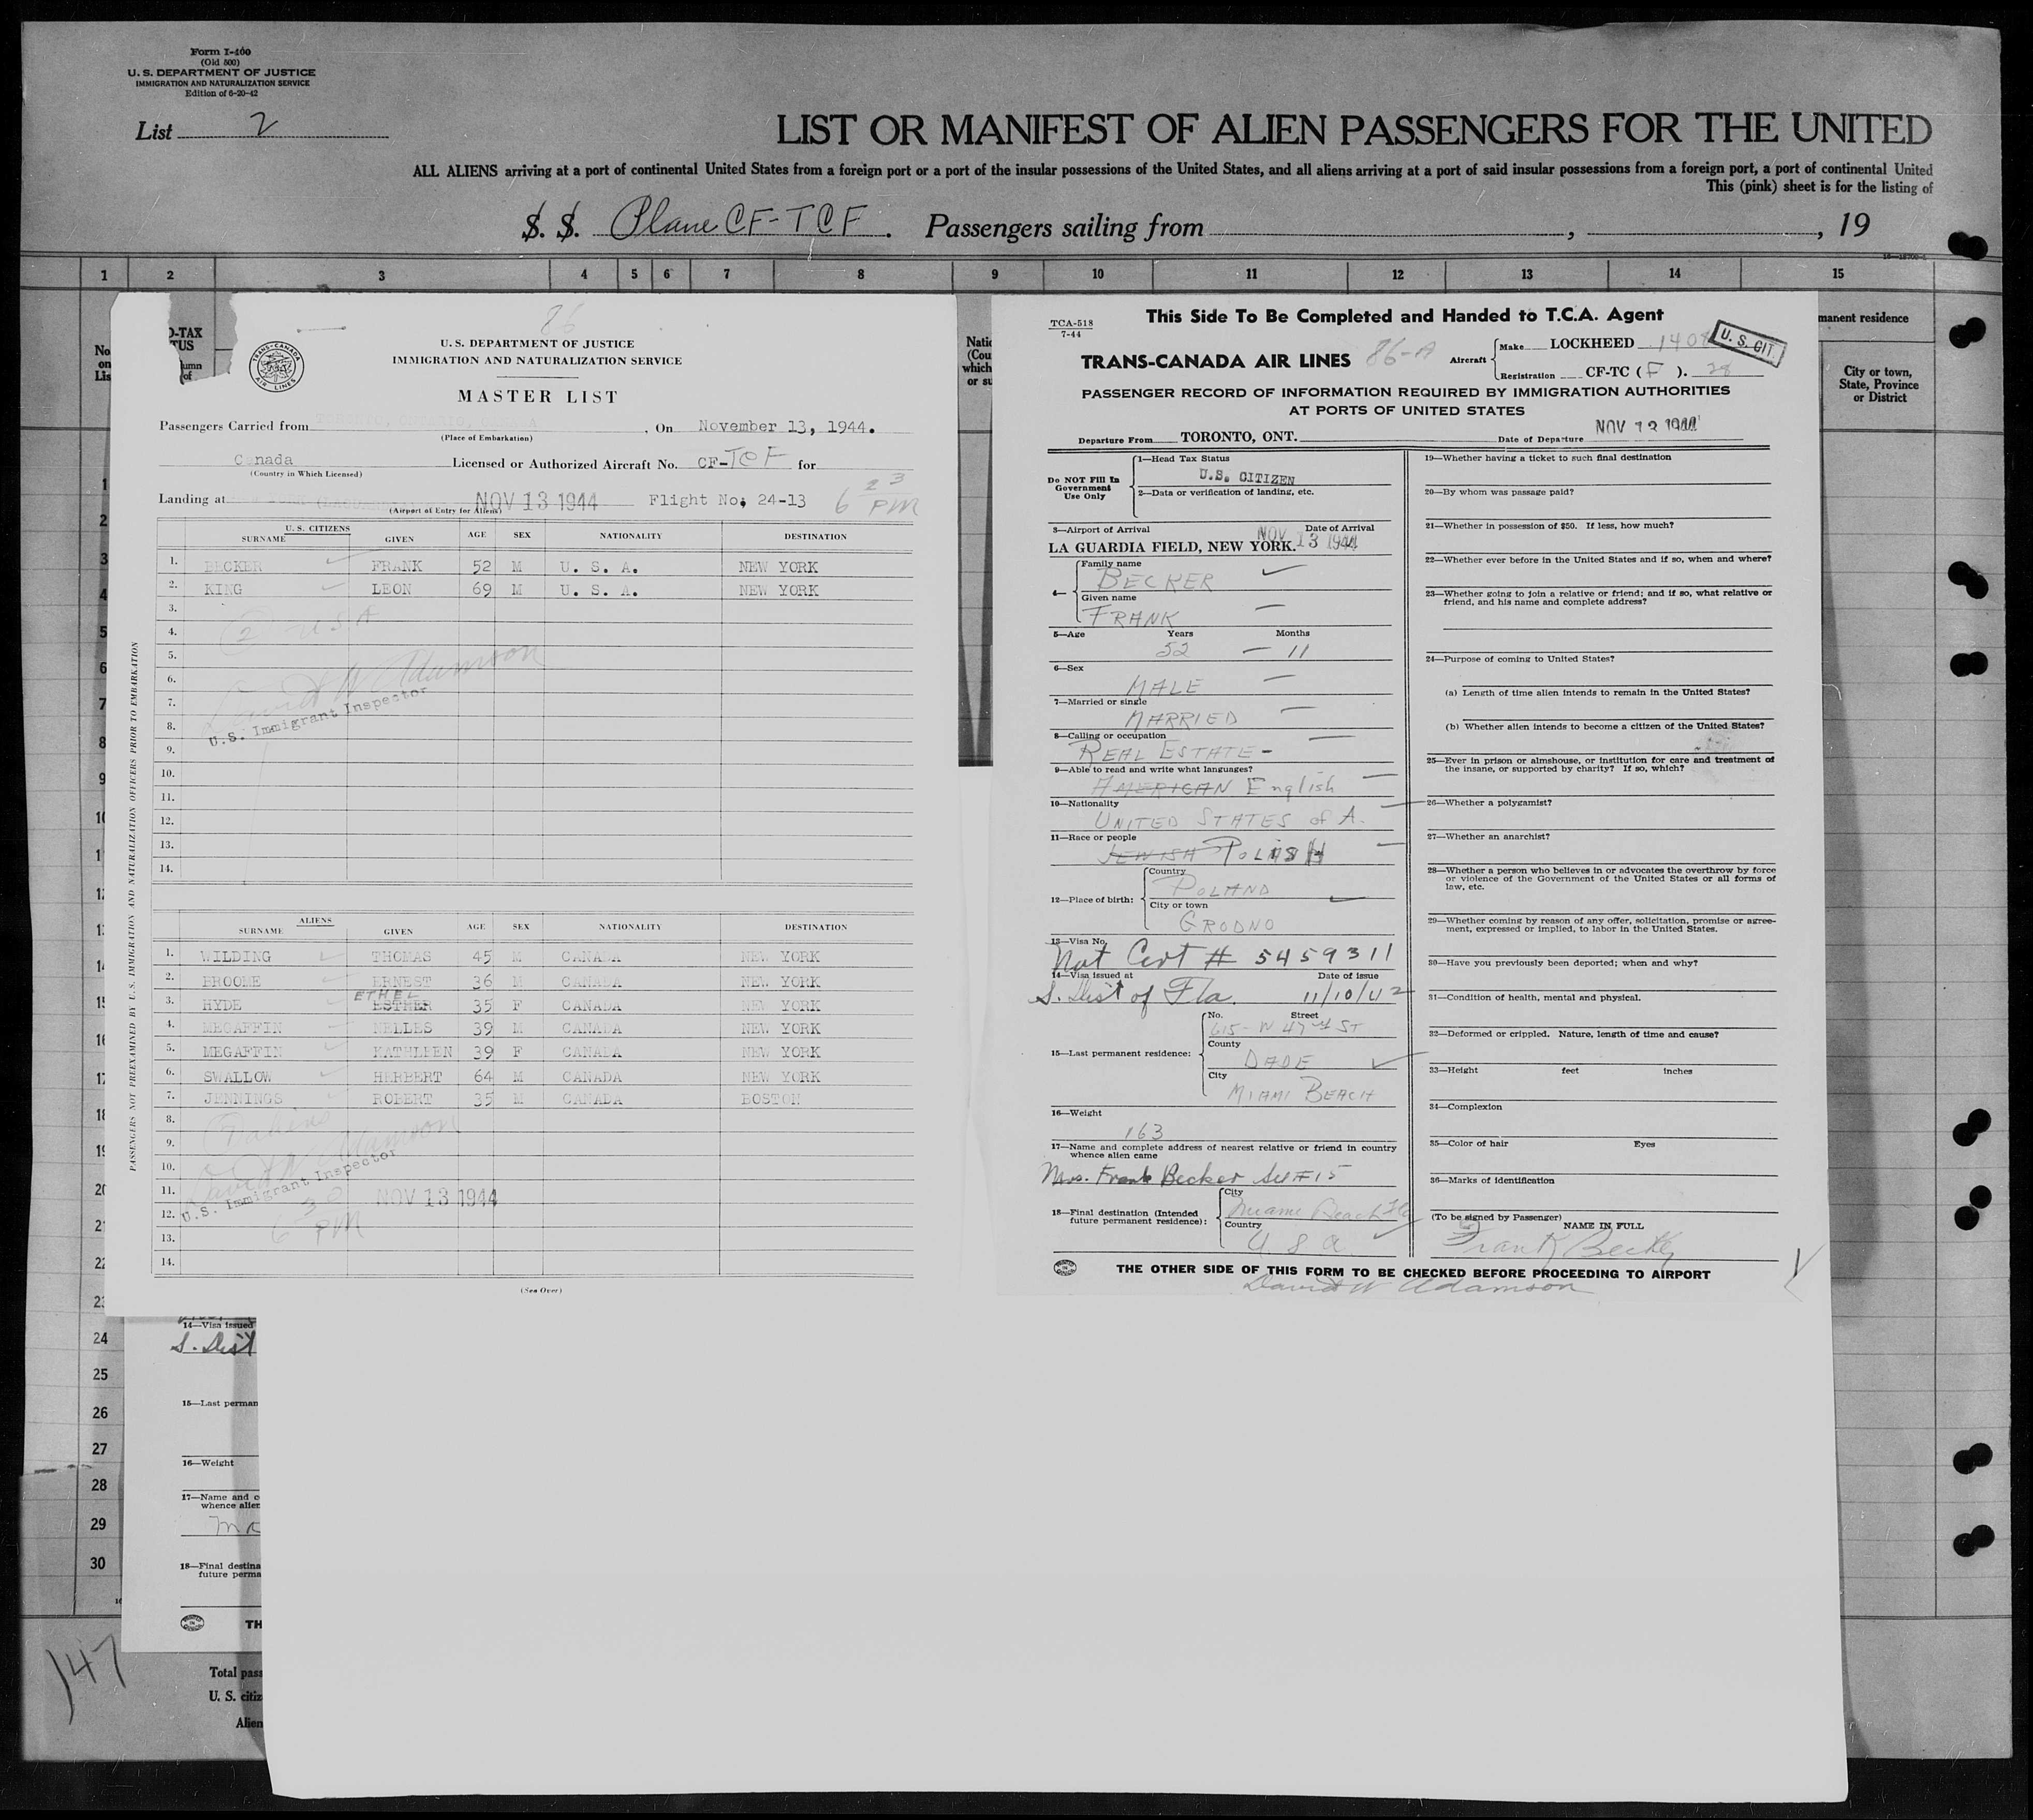 Form I-400
(Old 500)
U. S. DEPARTMENT OF JUSTICE
IMMIGRATION AND NATURALIZATION SERVICE
Edition of 6-20-42
List 2
LIST OR MANIFEST OF ALIEN PASSENGERS FOR THE UNITED
ALL ALIENS arriving at a port of continental United States from a foreign port or a port of the insular possessions of the United States, and all aliens arriving at a port of said insular possessions from a foreign port, a port of continental United
This (pink) sheet is for the listing of
S. S. Plane CF-TCF. Passengers sailing from , , 19
1 2 3 4 5 6 7 8 9 10 11 12 13 14 15
manent residence
City or town,
State, Province
or District
86
TRANS-CANADA AIR LINES
U. S. DEPARTMENT OF JUSTICE
IMMIGRATION AND NATURALIZATION SERVICE
MASTER LIST
Passengers Carried from , On November 13, 1944.
(Place of Embarkation)
Canada Licensed or Authorized Aircraft No. CF-TCF for
(Country in Which Licensed)
Landing at NOV 13 1944 Flight No; 24-13 6 23 PM
(Airport of Entry for Aliens)
U. S. CITIZENS
SURNAME GIVEN AGE SEX NATIONALITY DESTINATION
1. BECKER FRANK 52 M U. S. A. NEW YORK
2. KING LEON 69 M U. S. A. NEW YORK
3.
4. 2 USA
5.
6. David W Adamson
7.
8. U.S. Immigrant Inspector
9.
10.
11.
12.
13.
14.
ALIENS
SURNAME GIVEN AGE SEX NATIONALITY DESTINATION
1. WILDING THOMAS 45 M CANADA NEW YORK
2. BROOME ERNEST 36 M CANADA NEW YORK
3. HYDE ESTHER ETHEL 35 F CANADA NEW YORK
4. MEGAFFIN NELLES 39 M CANADA NEW YORK
5. MEGAFFIN KATHLEEN 39 F CANADA NEW YORK
6. SWALLOW HERBERT 64 M CANADA NEW YORK
7. JENNINGS ROBERT 35 M CANADA BOSTON
8.
9.
10. David W Adamson
11. U.S. Immigrant Inspector NOV 13 1944
12. 6 30 PM
13.
14.
(See Over)
PASSENGERS NOT PREEXAMINED BY U.S. IMMIGRATION AND NATURALIZATION OFFICERS PRIOR TO EMBARKATION
TCA-518
7-44
This Side To Be Completed and Handed to T.C.A. Agent
TRANS-CANADA AIR LINES 86-A
Aircraft Make LOCKHEED 1408 U. S. CIT.
Registration CF-TC ( F ). 28
PASSENGER RECORD OF INFORMATION REQUIRED BY IMMIGRATION AUTHORITIES
AT PORTS OF UNITED STATES
Departure From TORONTO, ONT. Date of Departure NOV 13 1944
Do NOT Fill In
Government
Use Only
1—Head Tax Status
U.S. CITIZEN
2—Data or verification of landing, etc.
3—Airport of Arrival Date of Arrival
LA GUARDIA FIELD, NEW YORK. NOV 13 1944
4— Family name
BECKER
Given name
FRANK
5—Age Years Months
52 — 11
6—Sex
MALE
7—Married or single
MARRIED
8—Calling or occupation
REAL ESTATE -
9—Able to read and write what languages?
AMERICAN English
10—Nationality
UNITED STATES of A.
11—Race or people
JEWISH POLISH
12—Place of birth: Country
POLAND
City or town
GRODNO
13—Visa No.
Nat Cert # 5459311
14—Visa issued at Date of issue
S. Dist of Fla. 11/10/42
15—Last permanent residence: No. Street
615- W 47th ST
County
DADE
City
MIAMI BEACH
16—Weight
163
17—Name and complete address of nearest relative or friend in country
whence alien came
Mrs. Frank Becker See #15
18—Final destination (Intended
future permanent residence):
City
Miami Beach Fla
Country
U S A
19—Whether having a ticket to such final destination
20—By whom was passage paid?
21—Whether in possession of $50. If less, how much?
22—Whether ever before in the United States and if so, when and where?
23—Whether going to join a relative or friend; and if so, what relative or
friend, and his name and complete address?
24—Purpose of coming to United States?
(a) Length of time alien intends to remain in the United States?
(b) Whether alien intends to become a citizen of the United States?
25—Ever in prison or almshouse, or institution for care and treatment of
the insane, or supported by charity? If so, which?
26—Whether a polygamist?
27—Whether an anarchist?
28—Whether a person who believes in or advocates the overthrow by force
or violence of the Government of the United States or all forms of
law, etc.
29—Whether coming by reason of any offer, solicitation, promise or agree-
ment, expressed or implied, to labor in the United States.
30—Have you previously been deported; when and why?
31—Condition of health, mental and physical.
32—Deformed or crippled. Nature, length of time and cause?
33—Height feet inches
34—Complexion
35—Color of hair Eyes
36—Marks of identification
(To be signed by Passenger)
NAME IN FULL
Frank Becker
THE OTHER SIDE OF THIS FORM TO BE CHECKED BEFORE PROCEEDING TO AIRPORT
David W Adamson
14—Visa issued
S. Dist
15—Last perman
16—Weight
17—Name and c
whence alien
18—Final destina
future perma
TH
24
25
26
27
28
29
30
147
Total pass
U. S. citiz
Alien